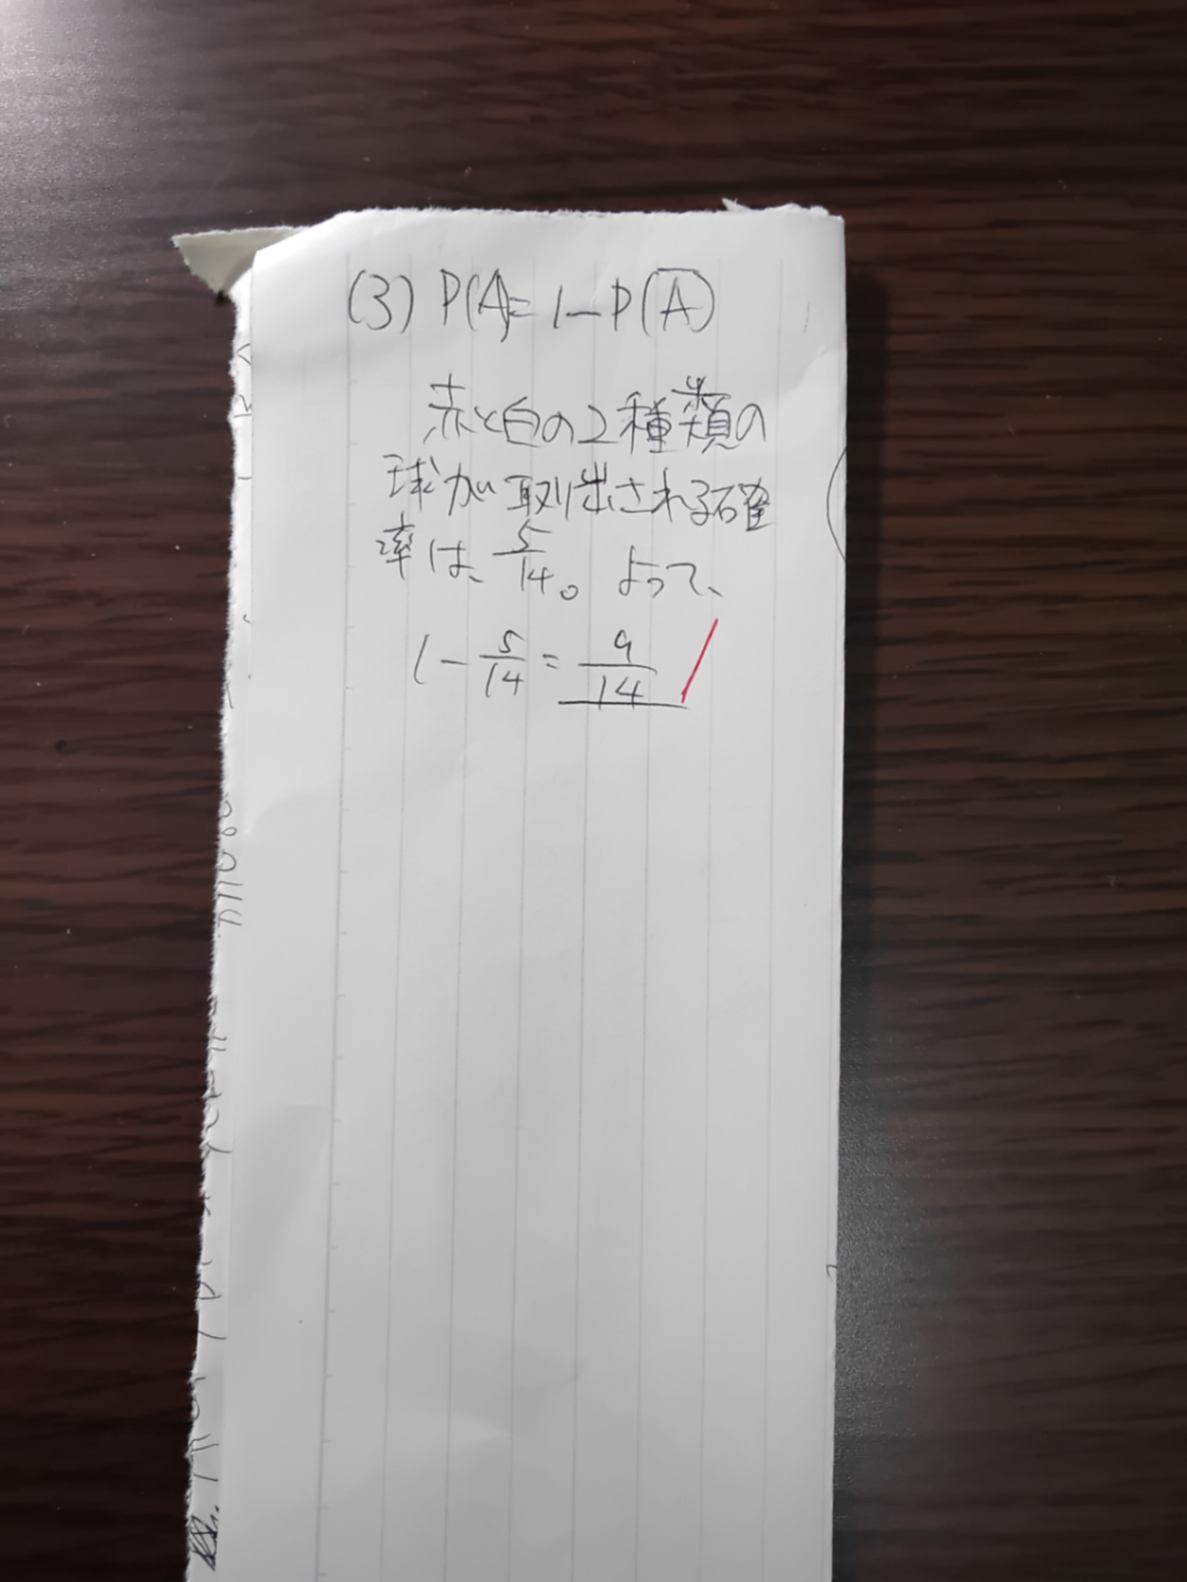 (3) P(A)= 1-P(A̅)
赤と白の2種類の
球が取り出される確
率は、5/14。よって、
1 - 5/14 = 9/14